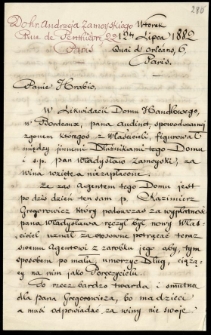 Do hr. Andrzeja Zamoyskiego
Wtorek
286
Rue de Penthièvre
12go Lipca 1882
Paris
Quai d'Orléans, 6.
Paris.
Panie Hrabio,
W Likwidacji Domu Handlowego,
w Bordeaux, pana Audinet, spowodowanej
zgonem tegoż Właściciela, figurował
między innemi Dłużnikami tego Domu
i ś.p. pan Władysław Zamoyski, za
wina wzięte a niezapłacone.
Że zaś Agentem tego Domu jest
po dziś dzień ten sam p. Kazimierz
Gregorowicz, który podówczas za wypłatność
pana Władysława ręczył był nowy Właś-
ciciel uznał za stosowne potrącać temu
swojemu Agentowi z zarobku jego aby, tym
sposobem po mału umorzyć Dług, ciążą-
cy na nim jako Poręczycielu
To rzecz bardzo twarda i smutna
dla pana Gregorowicza, bo na dzieci
a musi odpowiadać za winy nie swoje